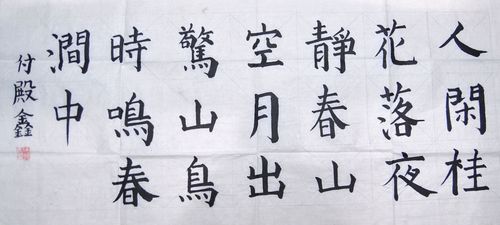 人閑桂
花落夜
靜春山
空月出
驚山鳥
時鳴春
澗中
付殿鑫